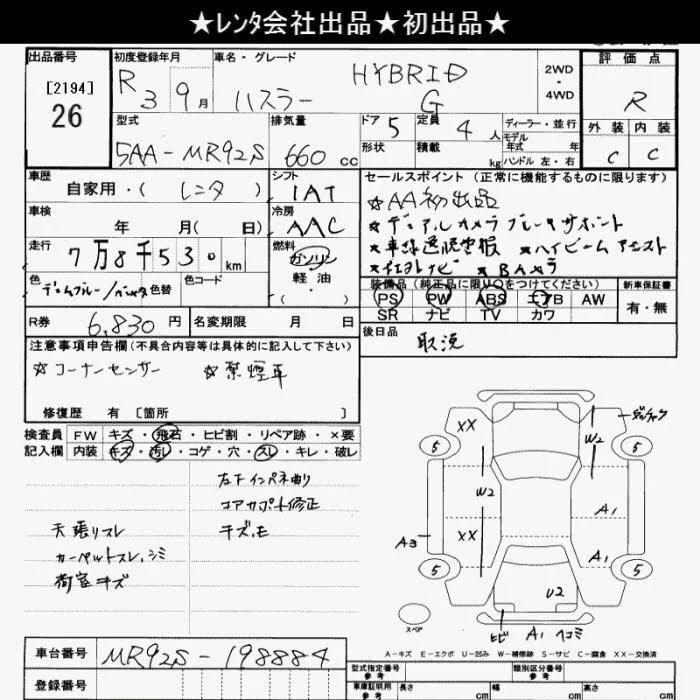 ★レンタ会社出品★初出品★
出品番号
[2194]
26
初度登録年月
R 3 9 月
車名・グレード
HYBRID
ハスラー G
2WD
・
4WD
評価点
R
外装 内装
C C
型式
5AA-MR92S
排気量
660 cc
ドア 5
形状
定員 4 人
積載 kg
ディーラー・並行
モデル
年式 年
ハンドル 左・右
車歴
自家用・( レンタ )
シフト
IAT
車検
年 月( 日)
冷房
AAC
走行
7万8千530 km
燃料
ガソリン
軽油
・( )
色 色替
色コード
R券 6,830 円
名変期限 月 日
セールスポイント (正常に機能するものに限ります)
★AA初出品
★デュアルカメラブレーキサポート
★車線逸脱警報 ★ハイビームアシスト
装備品(純正品に限り○をつけてください)
PS PW ABS エアB AW
SR ナビ TV カワ
新車保証書
有・無
後日品
取説
注意事項申告欄(不具合内容等は具体的に記入して下さい)
☆コーナーセンサー ☆禁煙車
修復歴 有 [箇所 ]
検査員 FW キズ・飛石・ヒビ割・リペア跡・×要
記入欄 内装 キズ・汚レ・コゲ・穴・スレ・キレ・破レ
左下インパネ曲り
コアサポート修正
キズ.モ
天張りスレ
カーペットスレ.シミ
荷室キズ
XX
W2
5
5
W2
A1
A3
XX
A1
5
5
U2
スペア
ヒビ A1 ヘコミ
A-キズ E-エクボ U-凹み W-補修跡 S-サビ C-腐食 XX-交換済
車台番号 MR92S-198884
登録番号
型式指定番号
参考
類別区分番号
参考
車庫証明用
参考
長さ cm
幅 cm
高さ cm